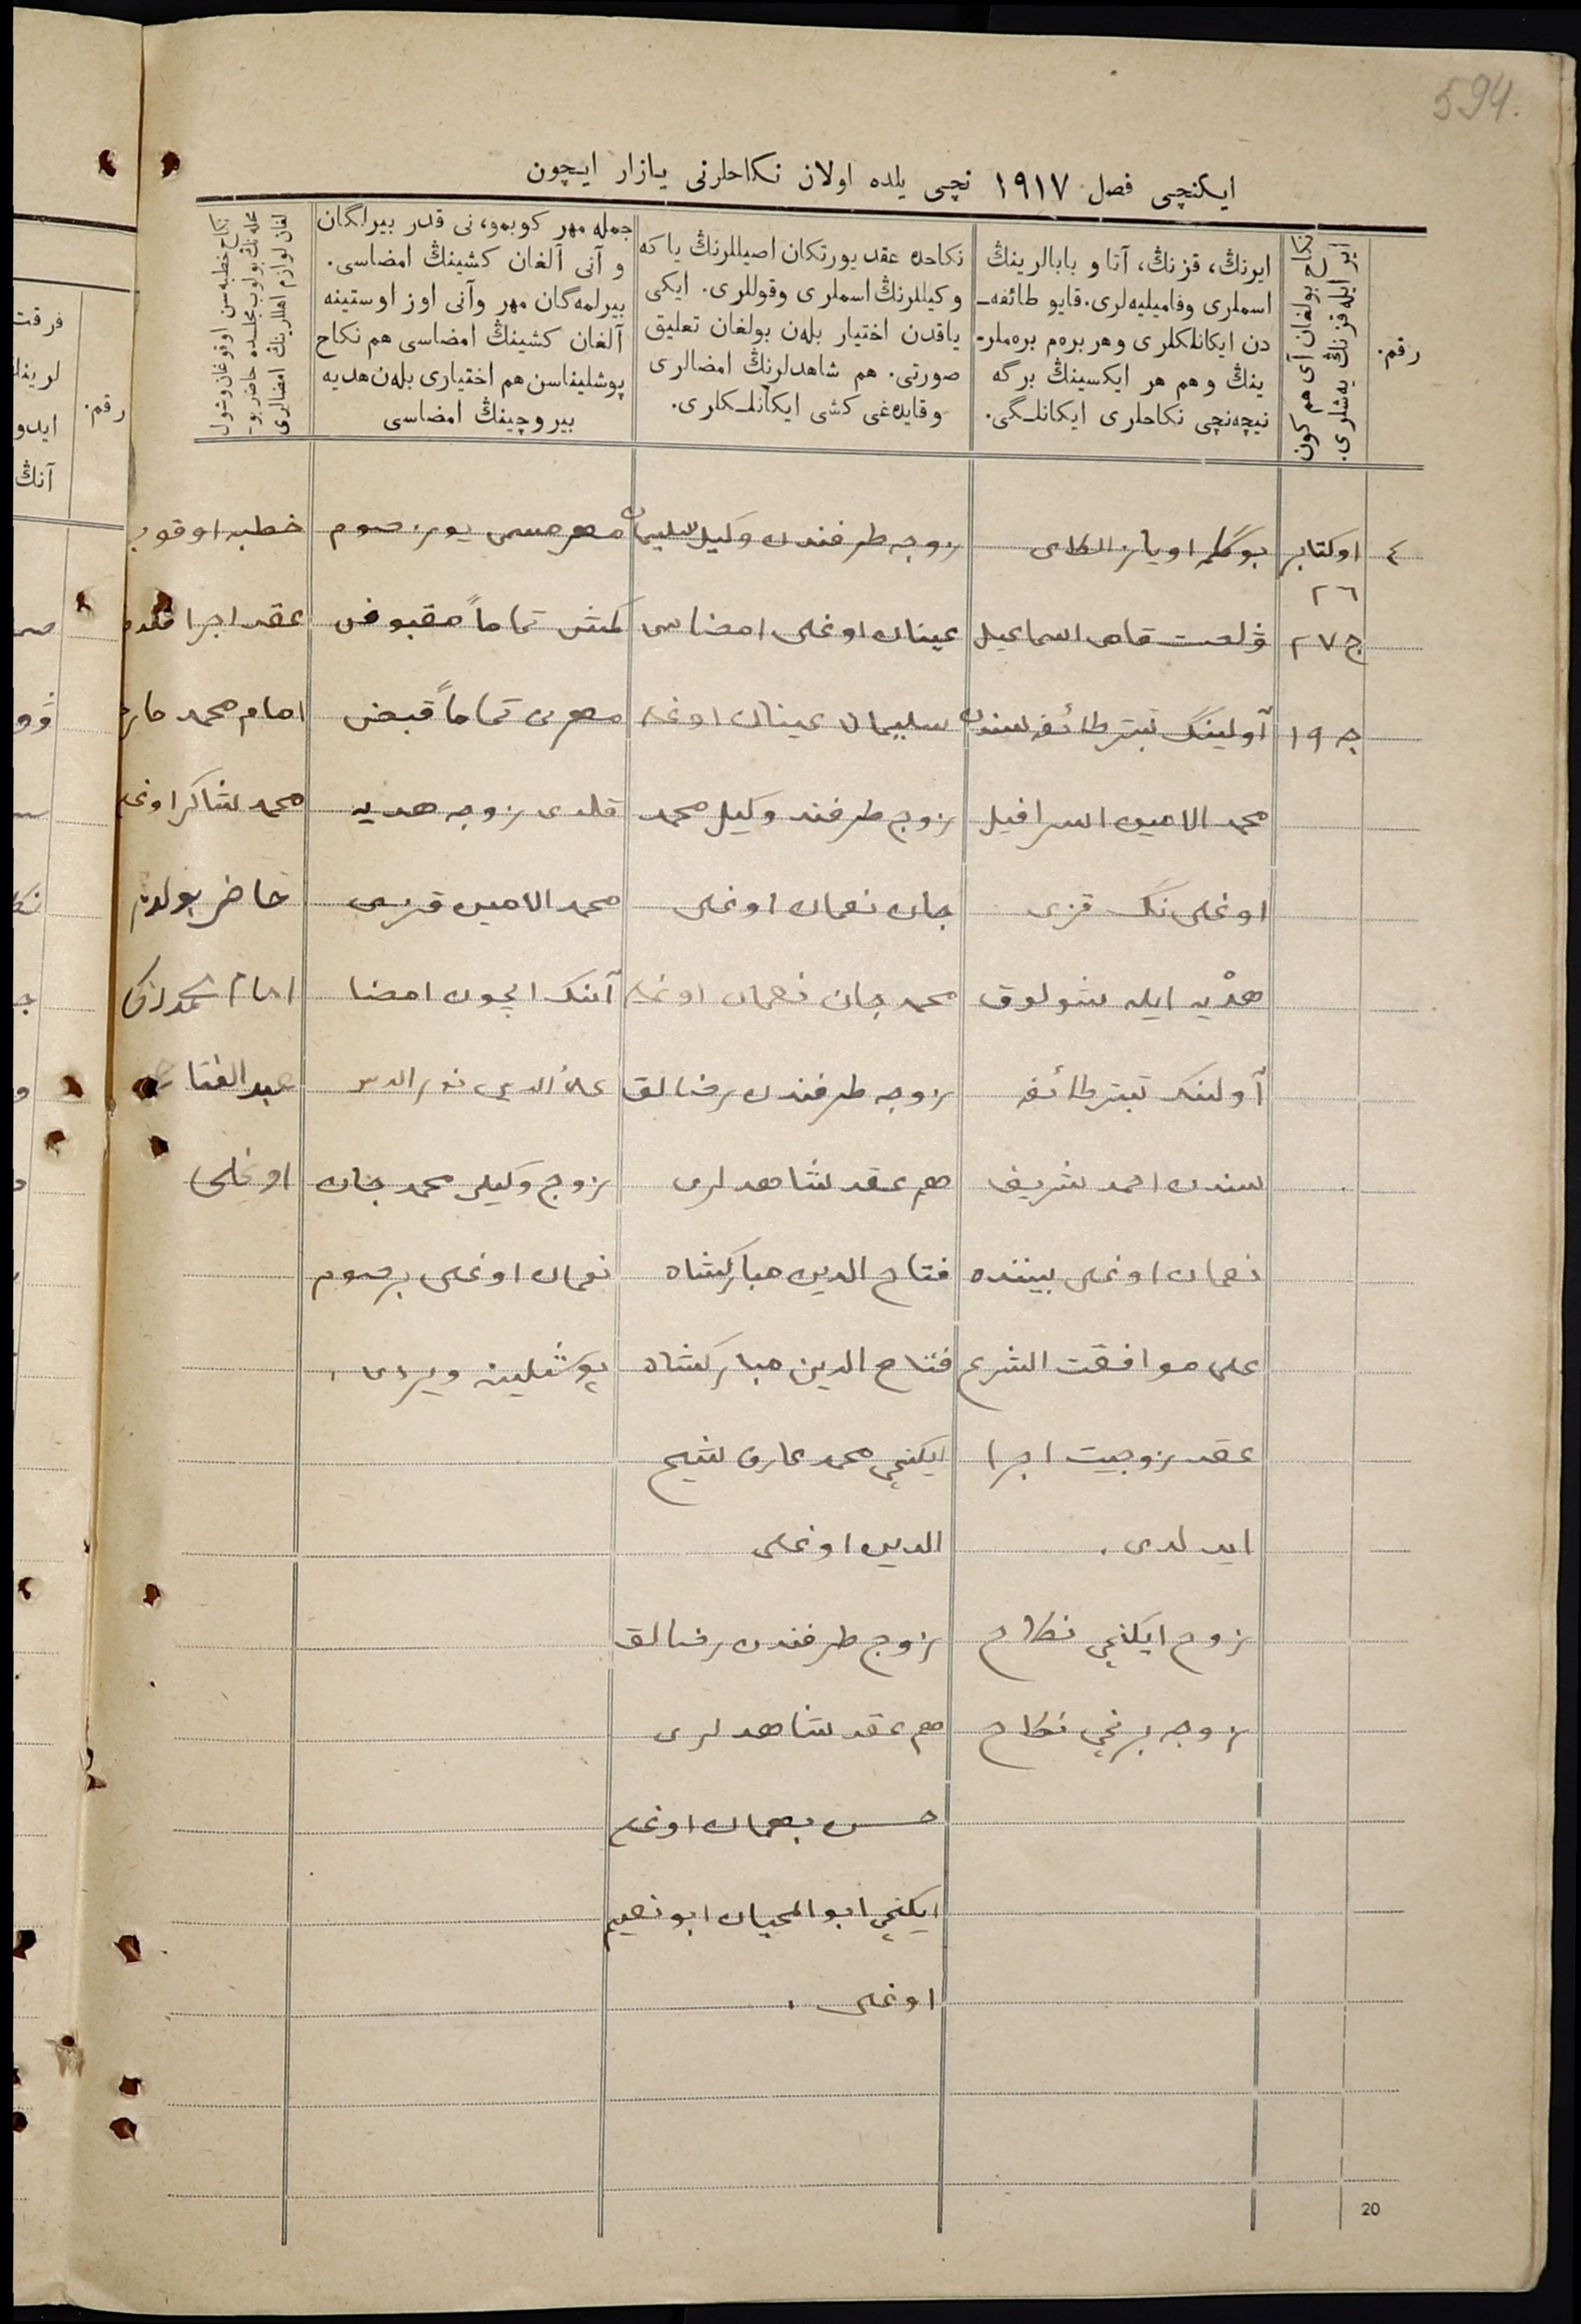 594.
ایکنچی فصل ١٩١٧ نچی یلده اولان نکاحلرنی یازار ایچون
رقم.
نکاح بولغان آی هم کون
ایر ایله قزنڭ یەشلری.
ایرنڭ، قزنڭ، آتا و بابالرینڭ
اسملری وفامیلیەلری. قایو طائفه‌ـ
دن ایکانلکلری و هر برەم برەملر‌ـ
ینڭ و هم هر ایکسینڭ برگه
نیچەنچی نکاحلری ایکانلـگی.
نکاحده عقد یورتکان اصیللرنڭ یا که
وکیللرنڭ اسملری وقوللری. ایکی
یاقدن اختیار بلەن بولغان تعلیق
صورتی. هم شاهدلرنڭ امضالری
وقایدەغی کشی ایکانلـکلری.
جمله مهر کوبمو، نی قدر بیرلگان
و آنی آلغان کشینڭ امضاسی.
بیرلمەگان مهر وآنی اوز اوستینه
آلغان کشینڭ امضاسی هم نکاح
پوشلیناسن هم اختیاری بلەن هدیه
بیروچینڭ امضاسی
نکاح خطبەسن اوقوغان وشول
محله‌نڭ بولوب مجلسده حاضر بو‌ـ
لغان لوازم اهللرینڭ امضالری
٤
اوکتابر
٢٦
ج ٢٧
جه ١٩
بوگلمه اویازی
ڤلصت اسماعیل
آولینڭ تبتر طائفه سندن
محمد الامین اسرافیل
اوغلی نڭ قزی
هدْیه ایله شولوق
آولینڭ تبتر طائفه
سندن احمد شریف
نعمان اوغلی بیننده
علی موافقت الشرع
عقد زوجیت اجرا
ایدلدی.
زوج ایکنچی نکاح
زوجه برنچی نکاح
زوجه طرفندن وکیل سلیمان
عینان اوغلی امضاسی
سلیمان عینان اوغلی
زوج طرفندن وکیل محمد
جان نعمان اوغلی
محمد جان نعمان اوغلی
زوجه طرفندن رضالق
هم عقد شاهدلری
فتاح الدین مبارکشاه
فتاح الدین مبارکشاه
ایکنچی محمد عارف شیخ
الدین اوغلی
زوج طرفندن رضالق
هم عقد شاهدلری
حسن نعمان اوغلی
ایکنچی ابو المحیان ابو نعیم
اوغلی.
مهر مسمی یوز صوم
کمش تماماً مقبوض
مهرن تماماً قبض
قلدی زوجه هدیه
محمد الامین قزی
آننڭ ایچون امضا
علاٴ الدین نور الدین
زوج وکیلی محمد جان
نعمان اوغلی بر صوم
پوشلینه ویردی.
خطبه اوقوب
عقد اجرا قلدم
امام محمد
محمد شاکر اوغلی
حاضر بولدم
امام
عبد الفتاح
اوغلی
20
فرقت
رقم.
ایدو
آنڭ